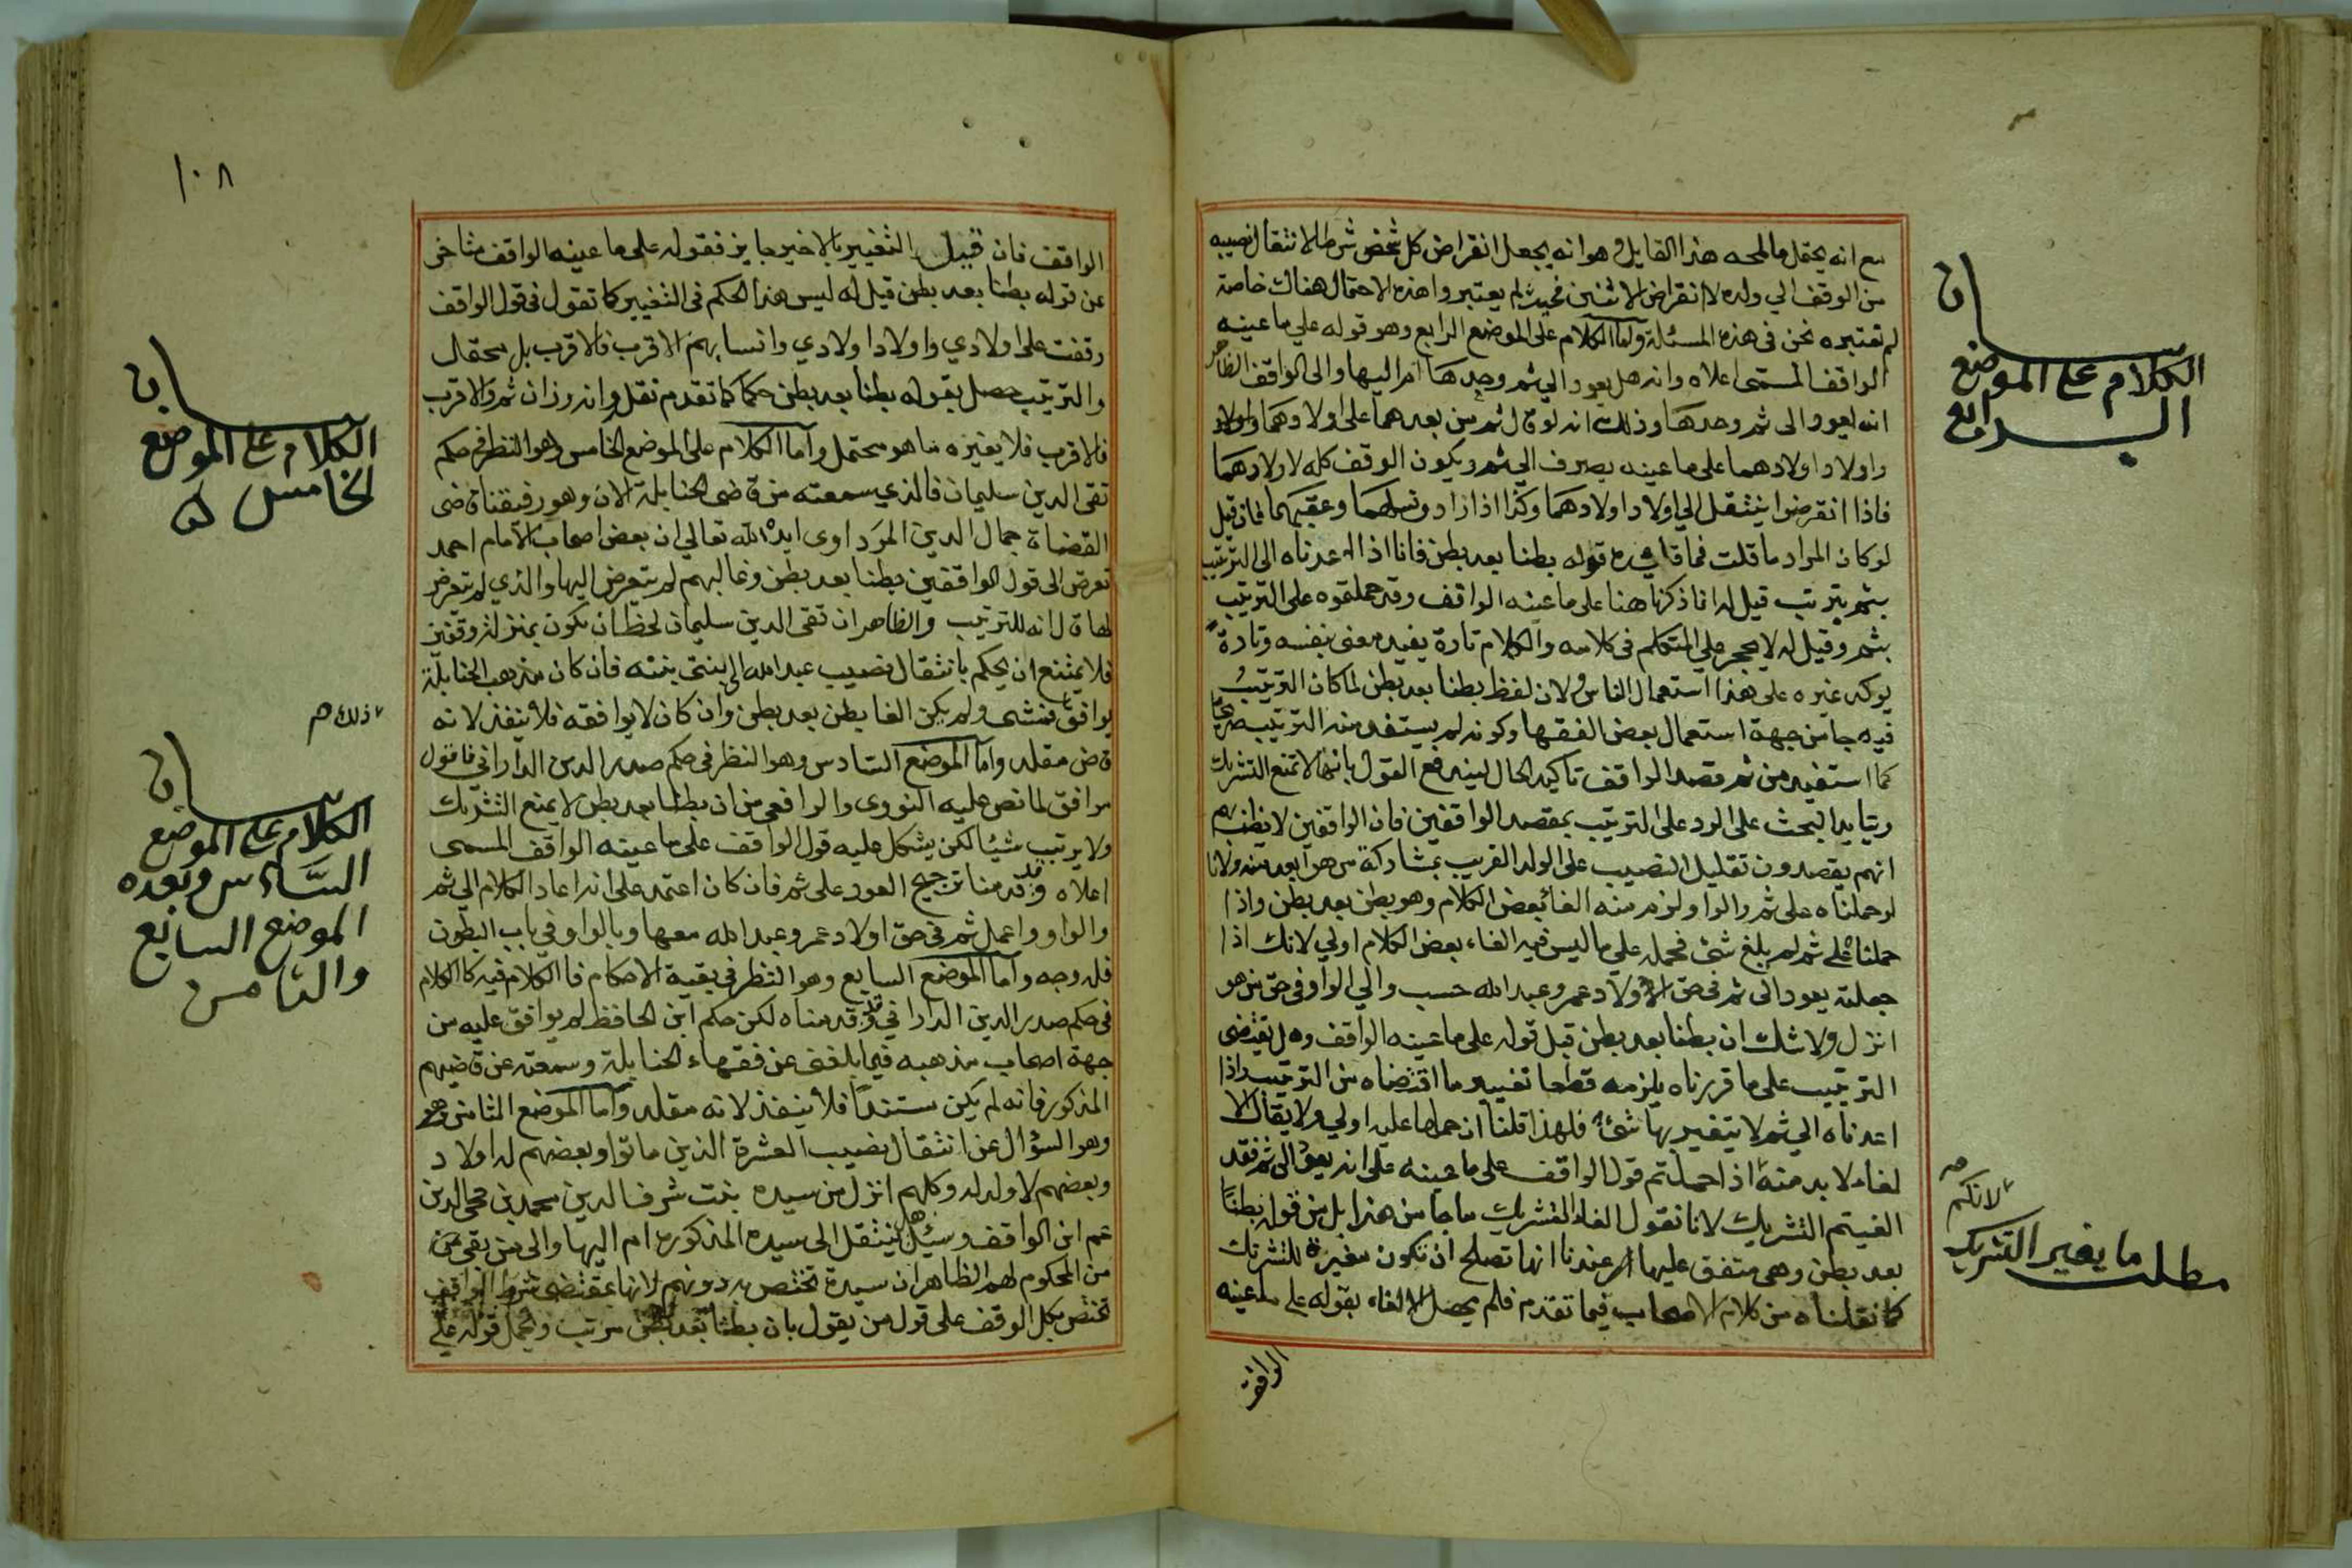 مع انه يحتمل ما لمحه هذا القايل وهو انه يجعل انقراض كل شخص شرطا لانتقال نصيبه
من الوقف الي ولده لا انقراض الاثنين فحيث لم يعتبروا هذه الاحتمال هناك خاصة
لم نعتبره نحن في هذه المسئلة واما الكلام على الموضع الرابع وهو قوله علي ما عينه
الواقف المسمى اعلاه وانه هل يعود الي ثم وحدها ام اليها والى الواقف الظاهر
انه يعود الى ثم وحدها وذلك انه لو قال ثم من بعدهما على اولادهما واولاد
واولاد اولادهما على ما عينه يصرف الي ثم ويكون الوقف كله لاولادهما
فاذا انقرضوا ينتقل الي اولاد اولادهما وكذا اذا زاد ونسلهما وعقبهما فان قيل
لو كان المراد ما قلت فما فايدة قوله بطنا بعد بطن فانا اذا اعدناه الى الترتيب
بثم يترتب قيل له انا ذكرنا هنا على ما عينه الواقف وقد حملتموه على الترتيب
بثم وقيل له لا حجر علي المتكلم في كلامه والكلام تارة يفيد معنى بنفسه وتارة
يوكد غيره على هذا استعمال الناس ولان لفظ بطنا بعد بطن لما كان الترتيب
فيه جا من جهة استعمال بعض الفقها وكونه لم يستفد منه الترتيب صريحا
كما استفيد من ثم قصد الواقف تاكيد الحال ليندفع القول بانها لا تمنع التشريك
ويتايد البحث على الرد على الترتيب بمقصد الواقفين فان الواقفين لا يظن بهم
انهم يقصدون تقليل النصيب على الولد القريب بمشاركة من هو ابعد منه ولانا
لو حملناه على ثم والواو لزم منه الغا بعض الكلام وهو بطن بعد بطن واذا
حملناه على ثم لم يلغ شئ فحمله علي ما ليس فيه الغاء بعض الكلام اولي لانك اذا
جعلته يعود الى ثم في حق الاولاد عمر وعبد الله حسب والي الواو في حق من هو
انزل ولا شك ان بطنا بعد بطن قبل قوله على ما عينه الواقف وهل يقتضى
الترتيب على ما قررناه يلزمه قطعا تغيير ما اقتضاه من الترتيب واذا
اعدناه الي ثم لا يتغير بها شئ فلهذا قلنا ان حملها عليه اولي ولا يقال الا
لغاء لا بد منه اذا حملتم قول الواقف على ما عينه على انه يعود الى ثم فقد
الغيتم التشريك لانا نقول الغاء التشريك ما جا من هذا بل من قوله بطنا
بعد بطن وهي متفق عليها عندنا انها تصلح ان تكون مغيرة للتشريك
كما نقلناه من كلام الاصحاب فيما تقدم فلم يحصل الالغاء بقوله على ما عينه
الواقف
الكلام على الموضع
الرابع
لانكم
مطلب ما يغير التشريك
١٠٨
الواقف فان قيل التغيير بالاخير جايز فقوله على ما عينه الواقف متاخر
عن قوله بطنا بعد بطن قيل له ليس هذا الحكم في التغيير كما تقول في قول الواقف
وقفت على اولادي واولاد اولادي وانسابهم الاقرب فالاقرب بل محتمال
والترتيب حصل بقوله بطنا بعد بطن حكما كما تقدم نقله وانه وزان ثم والاقرب
فالاقرب فلا يغيره ما هو محتمل واما الكلام على الموضع الخامس وهو النظر في حكم
تقى الدين سليمان فالذي سمعته من قاضى الحنابلة الان وهو رفيقنا قاضى
القضاة جمال الدين المرداوى ايده الله تعالي ان بعض اصحاب الامام احمد
تعرض الى قول الواقفين بطنا بعد بطن وغالبهم لم يتعرض اليها والذي لم يتعرض
لها قال انه للترتيب والظاهر ان تقى الدين سليمان لحظ ان تكون بمنزلة وقفين
فلا يمتنع ان يحكم بانتقال نصيب عبد الله الى بنتى بنته فان كان مذهب الحنابلة
يوافق فنشى ولم يكن الغا بطن بعد بطن وان كان لا يوافقه فلا ينفذ لانه
قاض مقلد واما الموضع السادس وهو النظر في حكم صدر الدين الداراني فاقول
موافق لما نص عليه النووى والرافعي من ان بطنا بعد بطن لا يمنع التشريك
ولا يرتب شيئا لكن يشكل عليه قول الواقف على ما عينه الواقف المسمى
اعلاه وقد قدمنا ترجيح العود على ثم فان كان اعتمد على انه اعاد الكلام الي ثم
والواو واعمل ثم في حق اولاد عمر وعبد الله معها وبالواو في باب البطون
فله وجه واما الموضع السابع وهو النظر في بقية الاحكام فالكلام فيه كالكلام
في حكم صدر الدين الداراني وقد قدمناه لكن حكم ابن الحافظ لم يوافق عليه من
جهة اصحاب مذهبه فيما بلغني عن فقهاء الحنابلة وسمعته عن قاضيهم
المذكور فانه لم يكن مستندا فلا ينفذ لانه مقلد واما الموضع الثامن وهو
وهو السؤال عن انتقال نصيب العشرة الذين ماتوا وبعضهم له اولاد
وبعضهم لا ولد له وكلهم انزل من سيده بنت شرف الدين محمد بن محي الدين
عم ابن الواقف وسئل هل ينتقل الى سيده المذكورة ام اليها والى من بقى من
من المحكوم لهم الظاهر ان سيدة تختص به دونهم لانها بمقتضى شرط الواقف
تختص بكل الوقف على قول من يقول بان بطنا بعد بطن مرتب ويحمل قوله على
الكلام على الموضع
الخامس
ذلك
الكلام على الموضع
السادس وبعده
الموضع السابع
والثامن